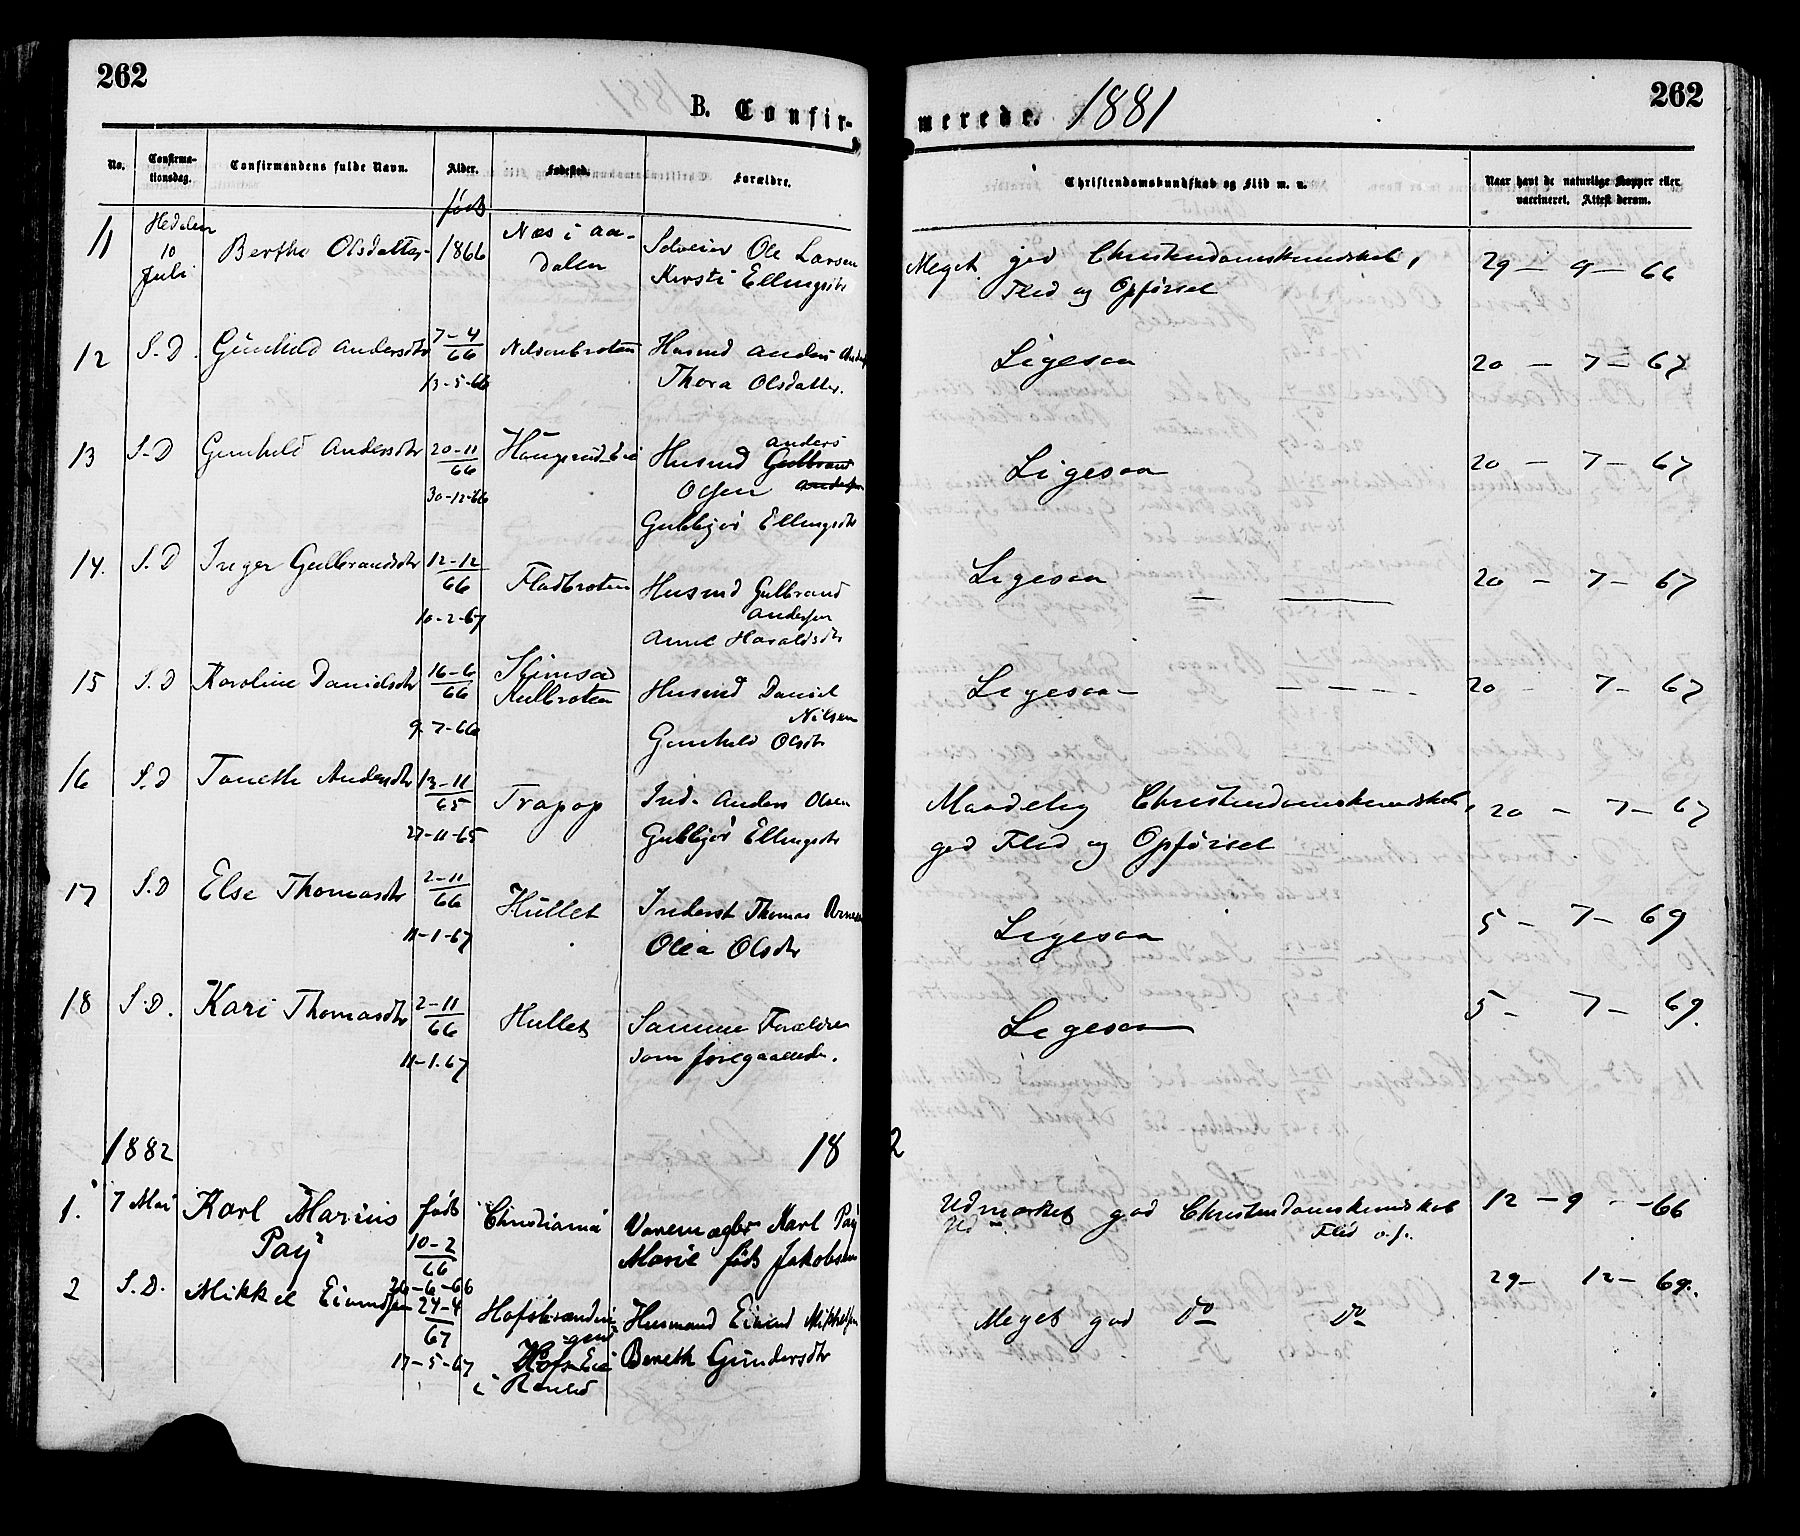 262
262
B. Confirmerede. 1881
No. Confirmationsdag. Confirmandens fulde Navn. Alder. Fødested. Forældre. Christendomskundskab og Flid m. v. Naar havt de naturlige Kopper eller vaccineret. Attest derom.
født
11 Hedalen 10 Juli Berthe Olsdatter 1866 Næs i Aadalen Ole Larsen
Kersti Ellingsdtr
Meget god Christendomskundskab,
Flid og Opførsel
29 – 9 – 66
12 S.D. Gunhild Andersdtr 7–4/66 Nilsenbroten Husmd Anders
13-5-66 Thora Olsdatter.
Ligesaa 20 – 7 – 67
13 S.D Gunhild Andersdtr 20–11/66 Haugerud Eie Husmd Anders Gulbrand
30-12-66 Olsen Andersen
Gubbjør Ellingsdtr
Ligesaa 20 – 7 – 67
14. S.D Inger Gulbrandsdtr 12–12/66 Fladbroten Husmd Gulbrand
Andersen
10-2-67 Anne Haraldsdtr
Ligesaa 20 – 7 – 67
15 S.D Karoline Danielsdtr 16–6/66 Husmd Daniel
Nilsen
9-7-66 Gunhild Olsdtr
Ligesaa 20 – 7 – 67
16 S.D Toneth Andersdtr 13–11/65 Trapop Ind. Anders Olsen
27-11-65 Gubbjør Ellingsdtr
Maadelig Christendomskundskab,
god Flid og Opførsel
20 – 7 – 67
17 S.D Else Thomasdtr 2–11/66 Hullet Inderst Thomas Arnesen
11-1-67 Olea Olsdtr
Ligesaa 5 – 7 – 69
18 S.D. Kari Thomasdtr 2–11/66 Hullet Samme Forældre
11-1-67 som foregaaende.
Ligesaa 5 – 7 – 69.
1882
18 2
1. 7 Mai Karl Marius Pay født 10–2/66 Christiania Karl Pay
Marie født Jakobsen
Udmærket god Christendomskundskab
Flid o.s.
12 – 9 – 66
26-6-66
2 S.D. Mikkel Eivindsen 24–4/67 Husmand Eivind Mikkelsen
17-5-67 Hofs Eie Bereth Gundersdtr
i
Meget god do do
29 – 12 – 69.